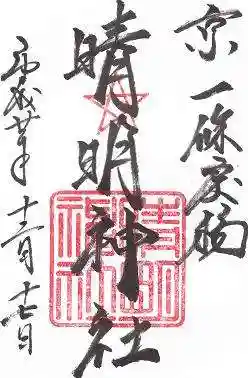 京一條戻橋
晴明神社
平成廿年十二月十七日
晴明神社